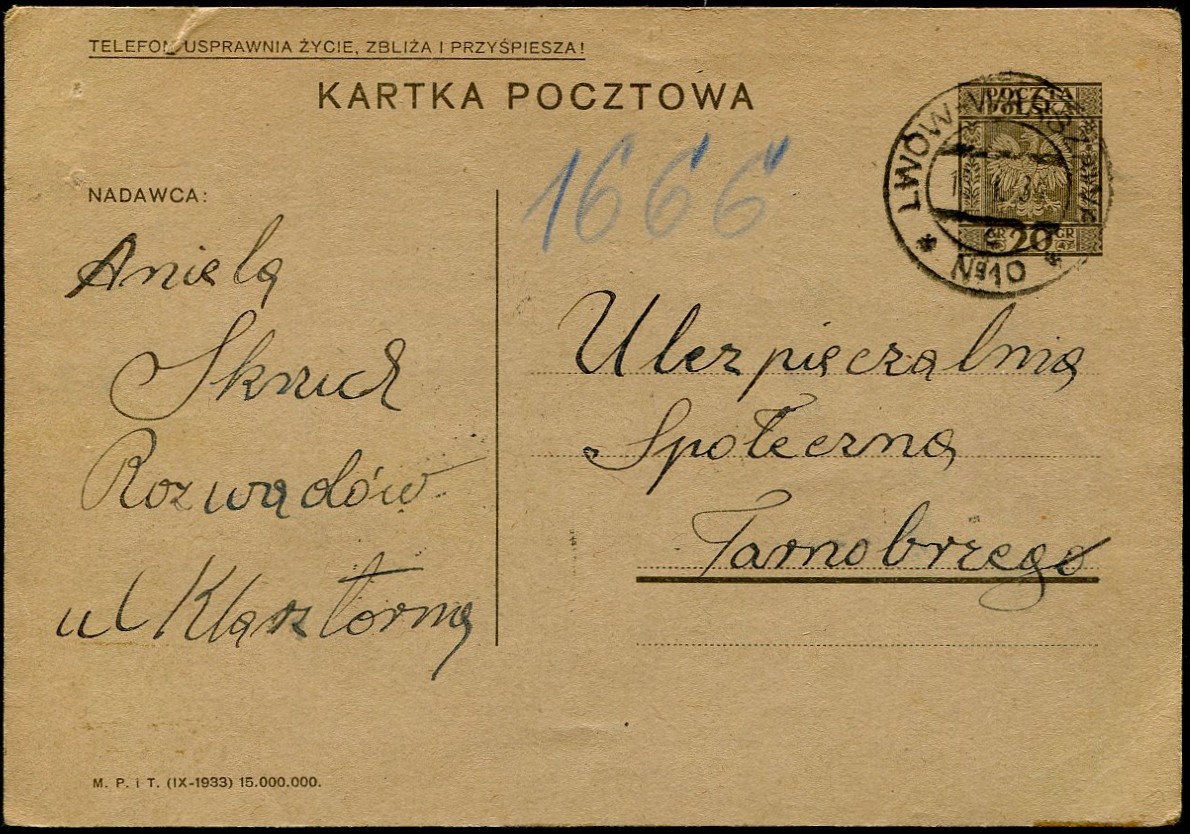 TELEFON USPRAWNIA ŻYCIE, ZBLIŻA I PRZYŚPIESZA!
KARTKA POCZTOWA
POCZTA
POLSKA
LWÓW
1666
GR 20 GR
№10
NADAWCA:
Aniela
Rozwadów
ul Klasztorna
Ubezpieczalnia
Społeczna
Tarnobrzegо
M. P. i T. (IX-1933) 15.000.000.